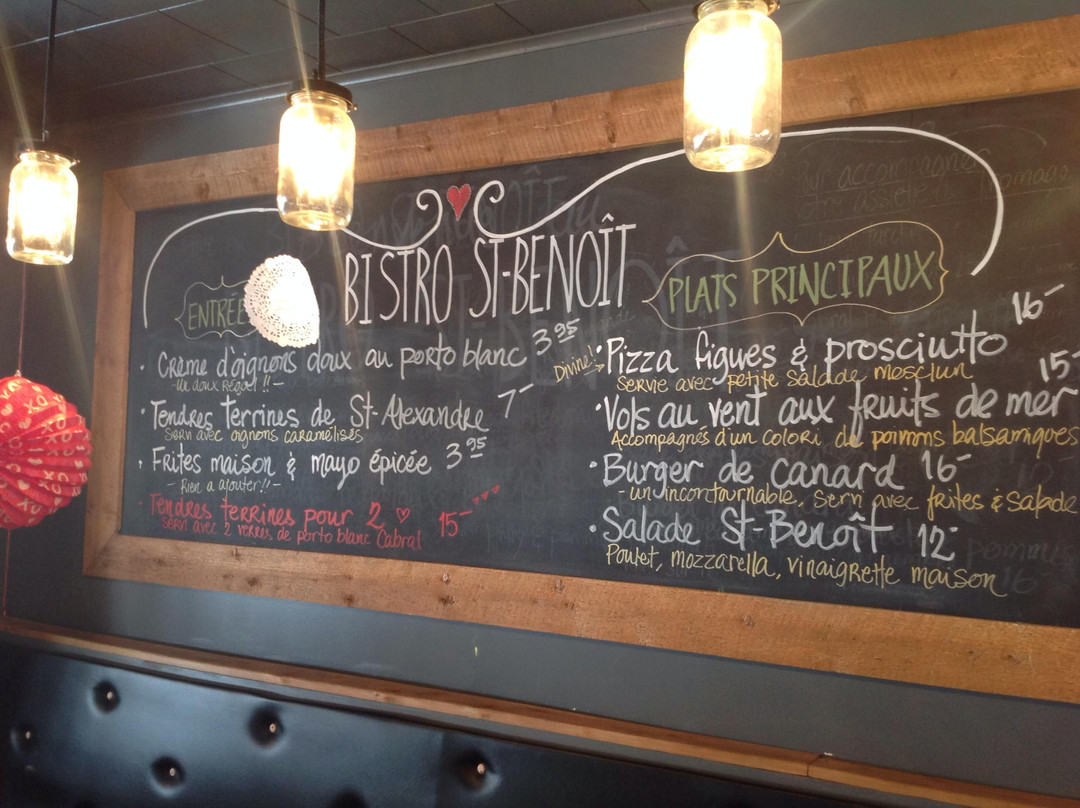 BISTRO ST-BENOÎT
ENTRÉE
· Crème d'oignons doux au porto blanc 3 95
- Un doux Régal !! -
· Tendres terrines de St-Alexandre 7-
Servi avec oignons caramélisés
· Frites maison & mayo épicée 3 95
- Rien a ajouter!! -
· Tendres terrines pour 2 ♡ 15-
Servi avec 2 verres de porto blanc Cabral
PLATS PRINCIPAUX
Divine!
· Pizza figues & prosciutto 16-
Servie avec petite salade mesclun
· Vols au vent aux fruits de mer 15-
Accompagnés d'un colori de poivrons balsamiques
· Burger de canard 16-
- un incontournable, Servi avec frites & Salade
· Salade St-Benoît 12-
Poulet, mozzarella, vinaigrette maison